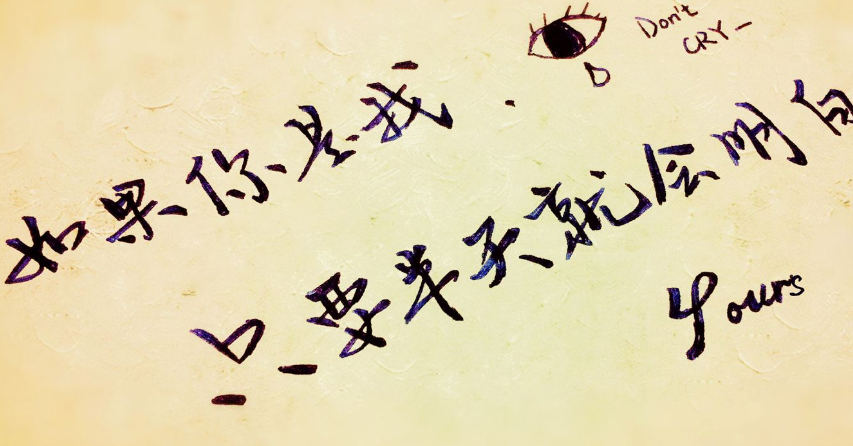 Don't
CRY-
如果你是我.
只要半天就会明白
yours